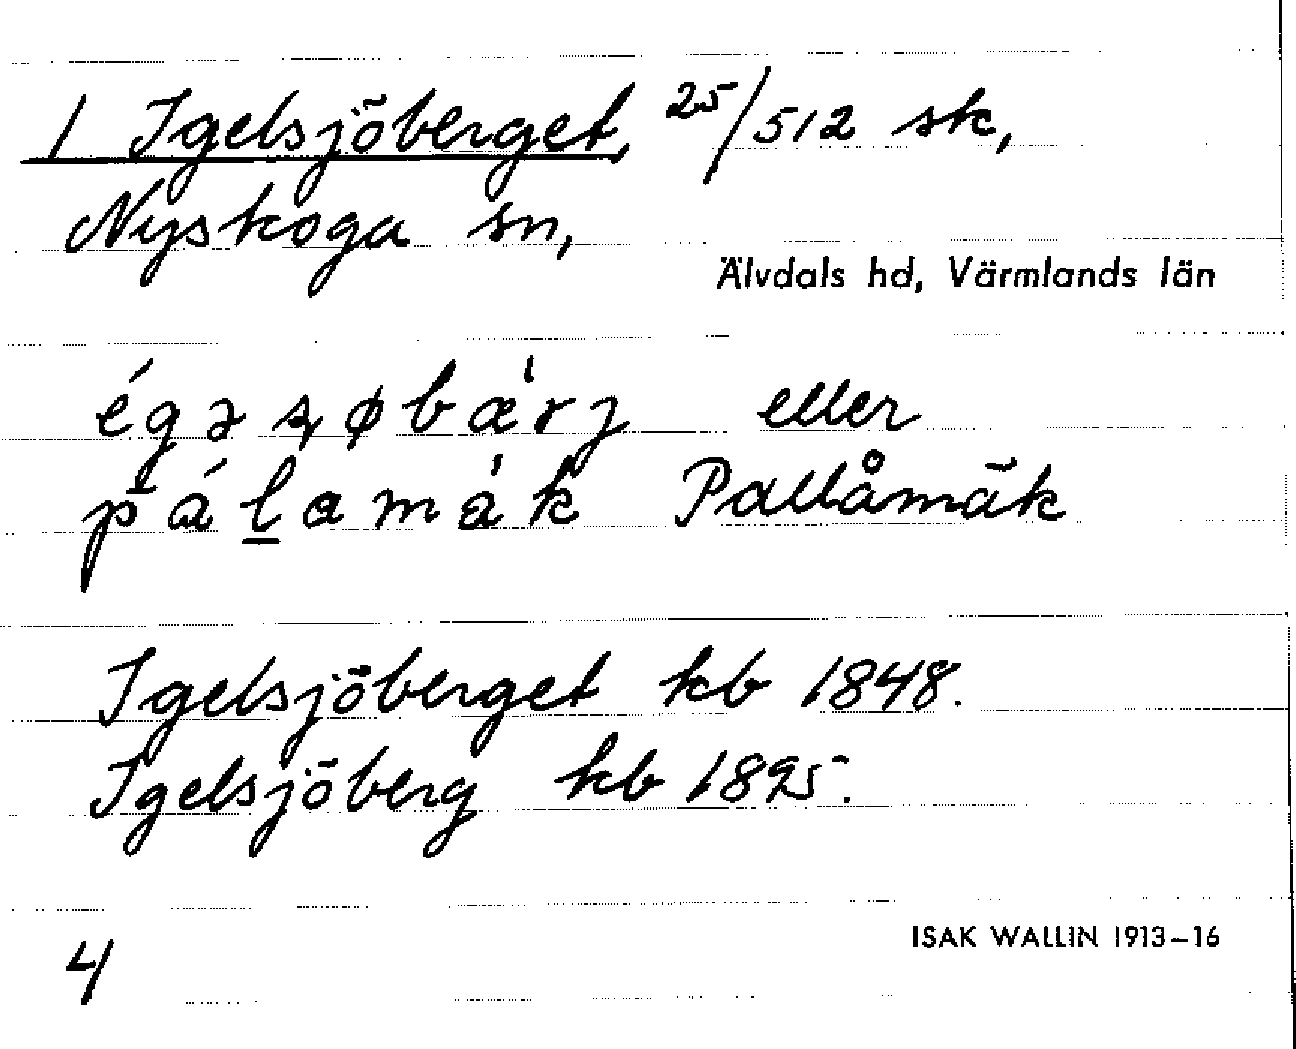 1 Igelsjöberget, 25/512 sk,
Nyskoga sn,
Älvdals hd, Värmlands län
égəʂøbæ̀rj eller
páḻamàk Pallåmäk
Igelsjöberget kb 1848.
Igelsjöberg kb 1895.
ISAK WALLIN 1913–16
4